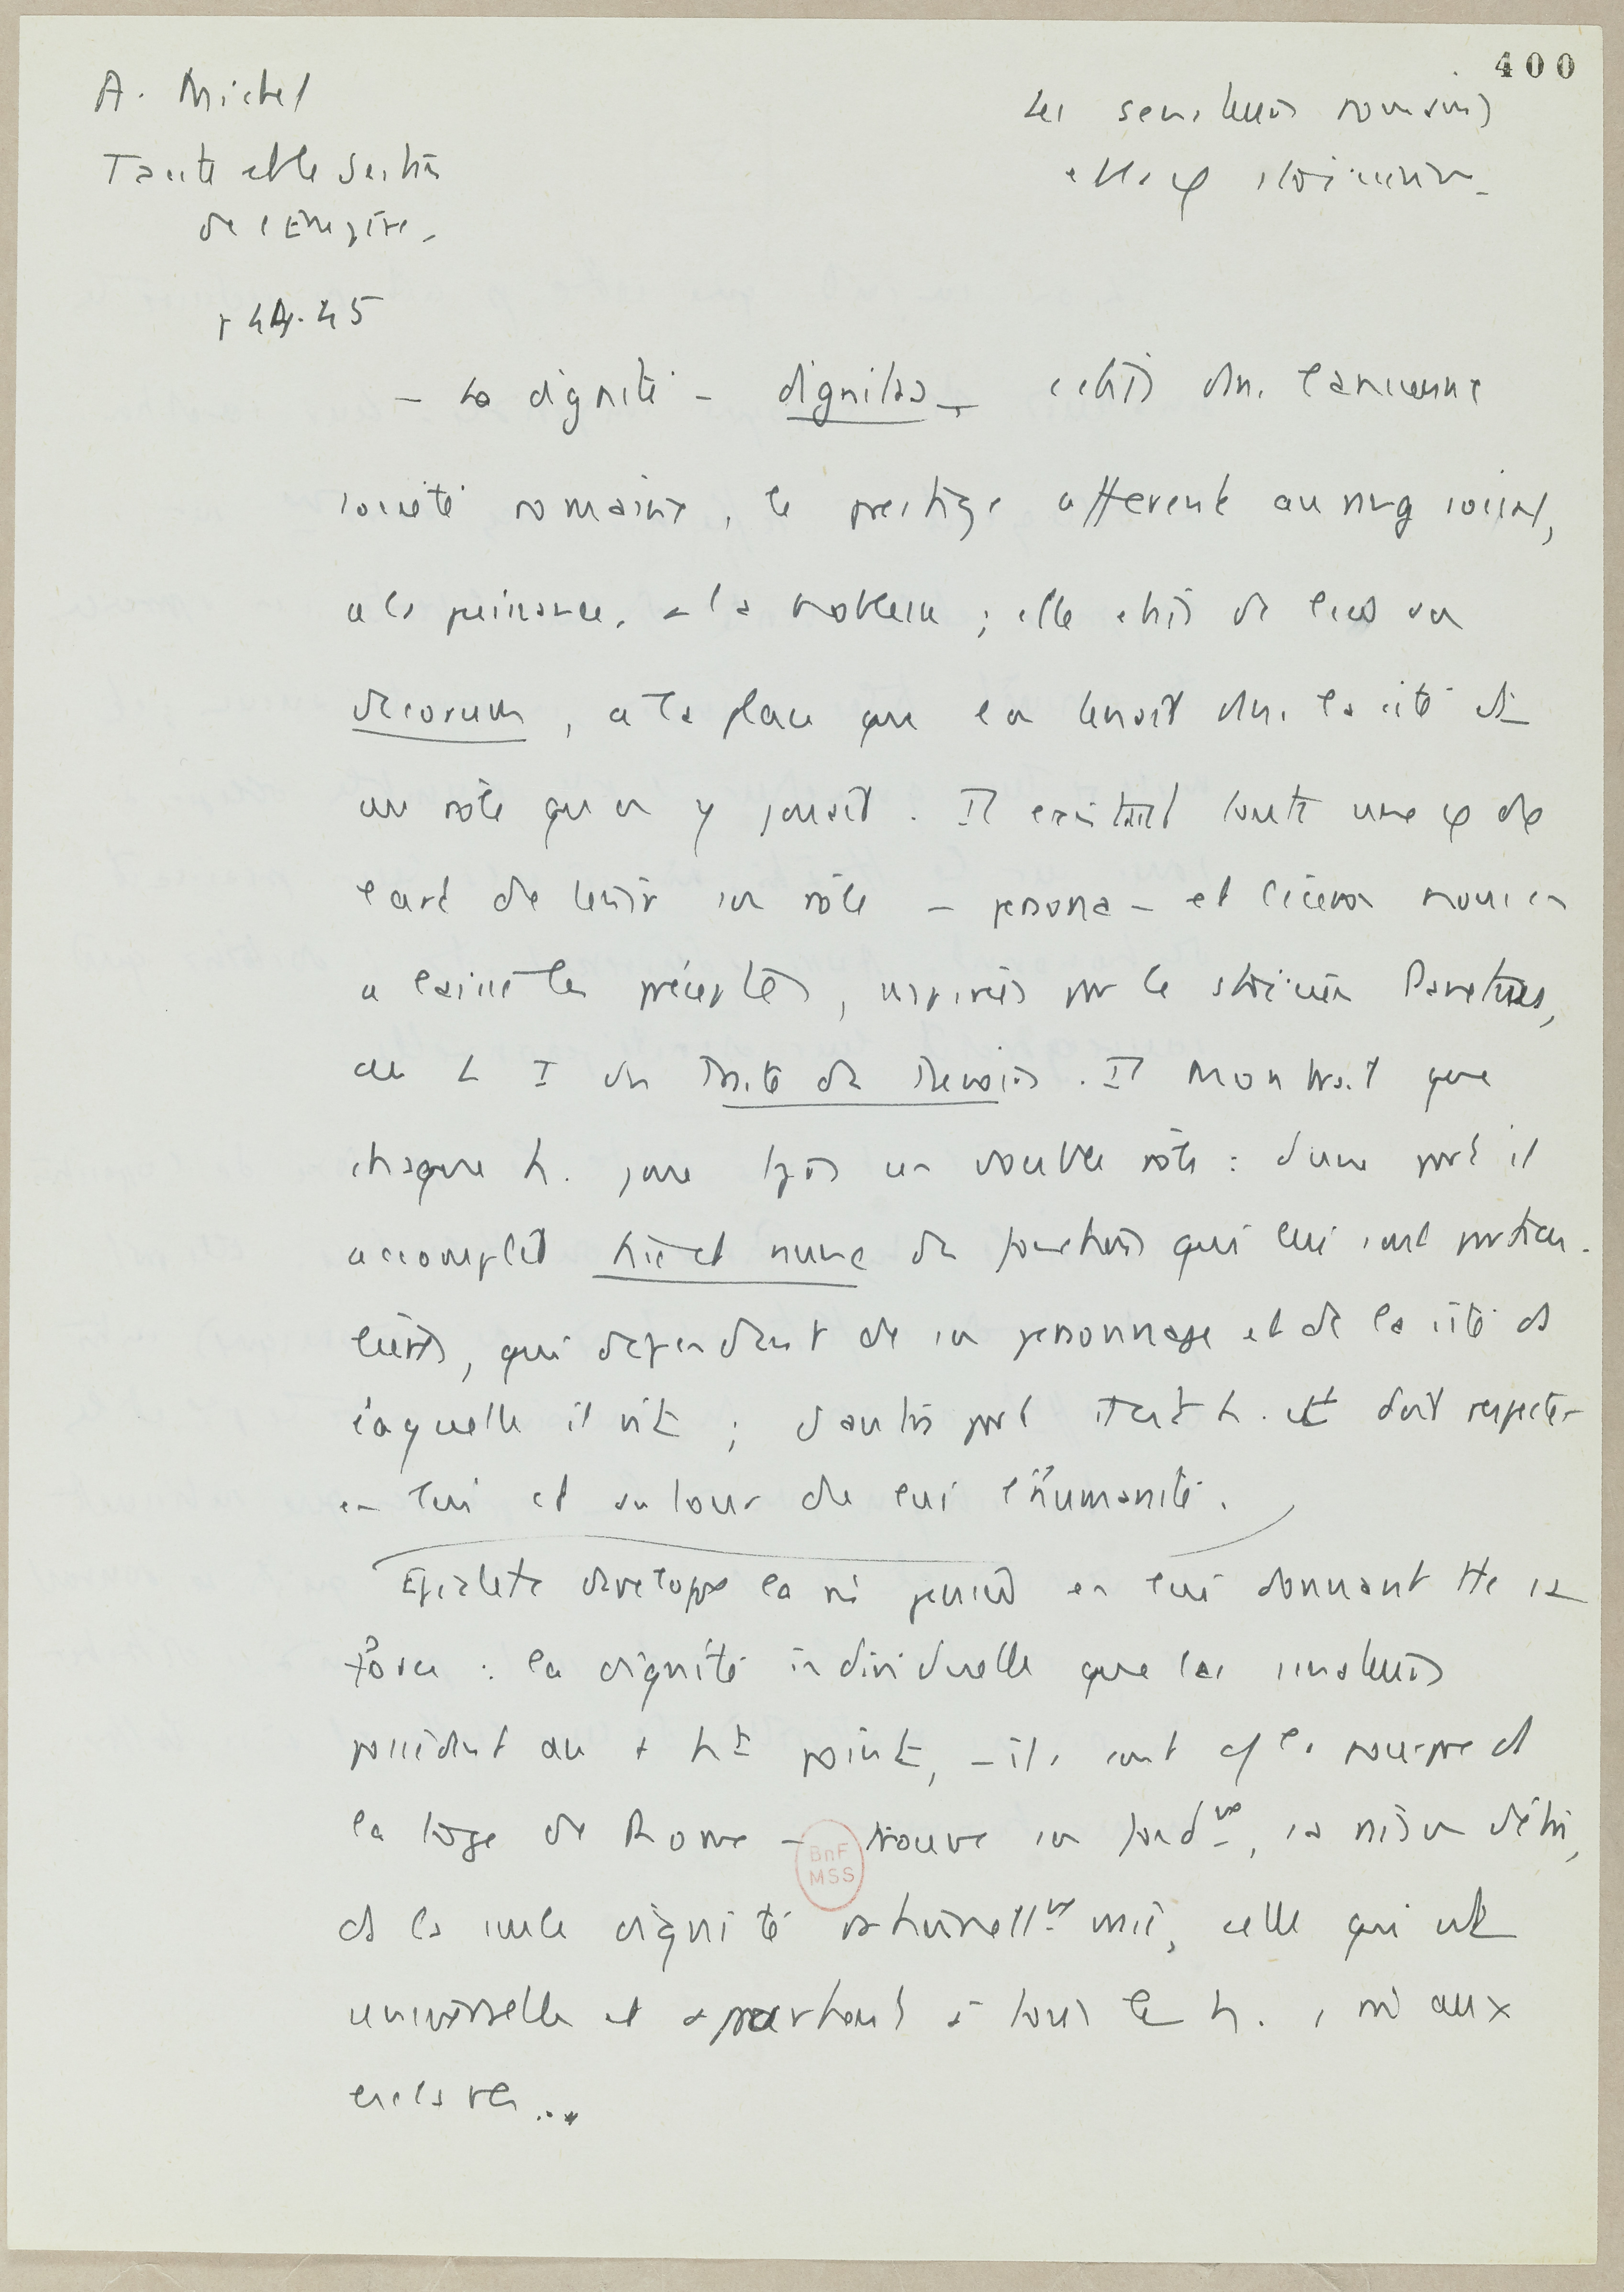 400
A. Michel
Tacite et le destin
de l'Empire.
p 44.45
Les senateurs romains
et la φ stoicienne.
– La dignité – dignitas – c'était dns l'ancienne
société romaine, le prestige afférent au rang social,
a la puissance, a la noblesse ; elle était de lieu au
decorum, a la place que l'on tenait dns la cité et
au rôle qu'on y jouait. Il existait toute une φ de
l'art de tenir son rôle – persona – et Ciceron nous en
a laissé les préceptes, inspirés par le stoicien Panetius,
au L I du Traité des Devoirs. Il montrait que
chaque h. joue tjrs un double rôle : d'une part il
accomplit hic et nunc des fonctions qui lui sont particu-
lières, qui dependent de son personnage et de la cité ds
laquelle il vit ; d'autre part il est h. et doit respecter
en lui et autour de lui l'humanité.
Epictète developpe la mê pensée en lui donnant tte sa
force : la dignité individuelle que les senateurs
possèdent au + ht point, – ils sont cf la pourpre et
la toge de Rome – trouve son fondmt, sa raison d'être,
ds la seule dignité rationnellmt vraie, celle qui est
universelle et appartient à tous les h., mê aux
esclaves...
BnF
MSS